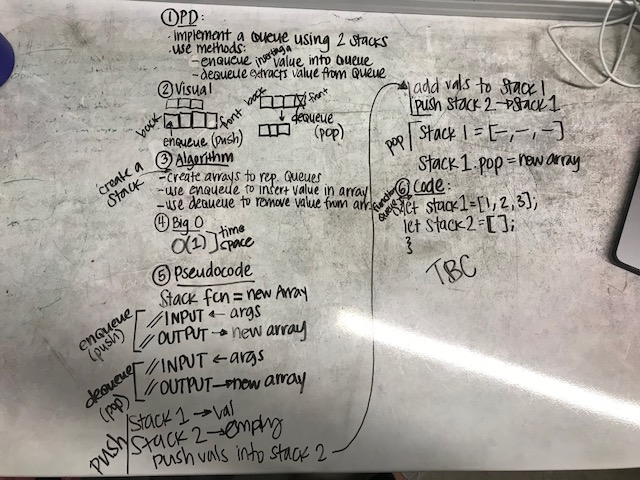 ① PD:
· implement a Queue using 2 Stacks
· use methods:
- enqueue inserting a value into Queue
- dequeue extracts value from Queue
② Visual
back
front
enqueue (push)
back
front
dequeue
(pop)
③ Algorithm
create a
Stack
- Create arrays to rep. Queues
- use enqueue to insert value in array
- use dequeue to remove value from arr
④ Big O
O(1)] time
space
⑤ Pseudocode
Stack fcn = new Array
enqueue
(push)
// INPUT ← args
// OUTPUT → new array
dequeue
(pop)
// INPUT ← args
// OUTPUT → new array
push
Stack 1 → val
Stack 2 → empty
push vals into stack 2
add vals to Stack 1
push stack 2 → Stack 1
pop
Stack 1 = [-, -, -]
Stack 1. pop = new array
⑥ Code:
function
queue
let stack1 = [1, 2, 3];
let stack2 = [ ];
}
TBC